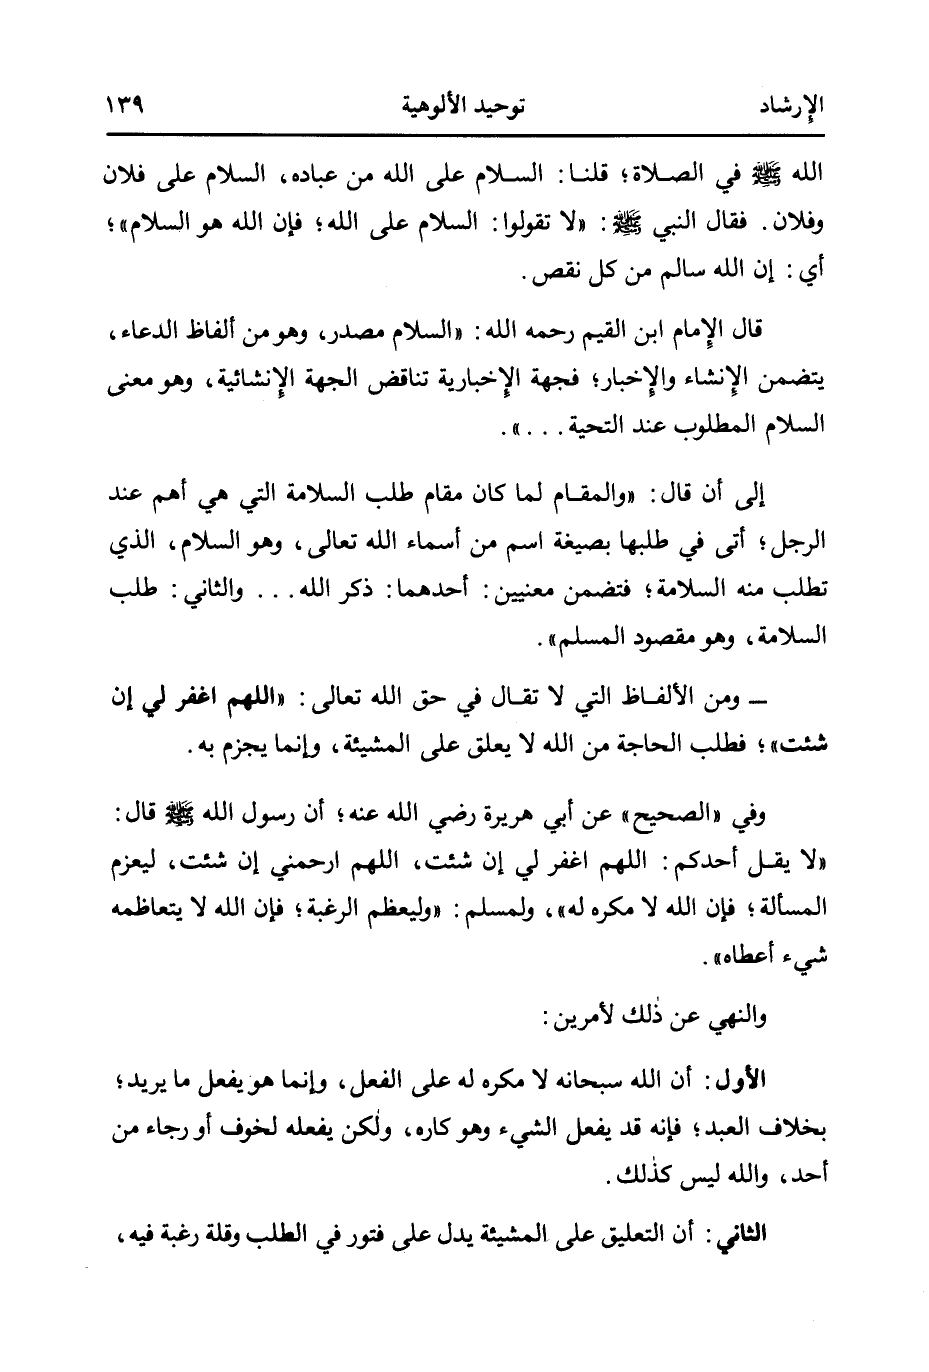 الإرشاد توحيد الألوهية ١٣٩
الله ﷺ في الصلاة؛ قلنا: السلام على الله من عباده، السلام على فلان
وفلان. فقال النبي ﷺ: «لا تقولوا: السلام على الله؛ فإن الله هو السلام»؛
أي: إن الله سالم من كل نقص.
قال الإمام ابن القيم رحمه الله: «السلام مصدر، وهو من ألفاظ الدعاء،
يتضمن الإنشاء والإخبار؛ فجهة الإخبارية تناقض الجهة الإنشائية، وهو معنى
السلام المطلوب عند التحية...».
إلى أن قال: «والمقام لما كان مقام طلب السلامة التي هي أهم عند
الرجل؛ أتى في طلبها بصيغة اسم من أسماء الله تعالى، وهو السلام، الذي
تطلب منه السلامة؛ فتضمن معنيين: أحدهما: ذكر الله... والثاني: طلب
السلامة، وهو مقصود المسلم».
ـ ومن الألفاظ التي لا تقال في حق الله تعالى: «اللهم اغفر لي إن
شئت»؛ فطلب الحاجة من الله لا يعلق على المشيئة، وإنما يجزم به.
وفي «الصحيح» عن أبي هريرة رضي الله عنه؛ أن رسول الله ﷺ قال:
«لا يقل أحدكم: اللهم اغفر لي إن شئت، اللهم ارحمني إن شئت، ليعزم
المسألة؛ فإن الله لا مكره له»، ولمسلم: «وليعظم الرغبة؛ فإن الله لا يتعاظمه
شيء أعطاه».
والنهي عن ذٰلك لأمرين:
الأول: أن الله سبحانه لا مكره له على الفعل، وإنما هو يفعل ما يريد؛
بخلاف العبد؛ فإنه قد يفعل الشيء وهو كاره، ولٰكن يفعله لخوف أو رجاء من
أحد، والله ليس كذٰلك.
الثاني: أن التعليق على المشيئة يدل على فتور في الطلب وقلة رغبة فيه،